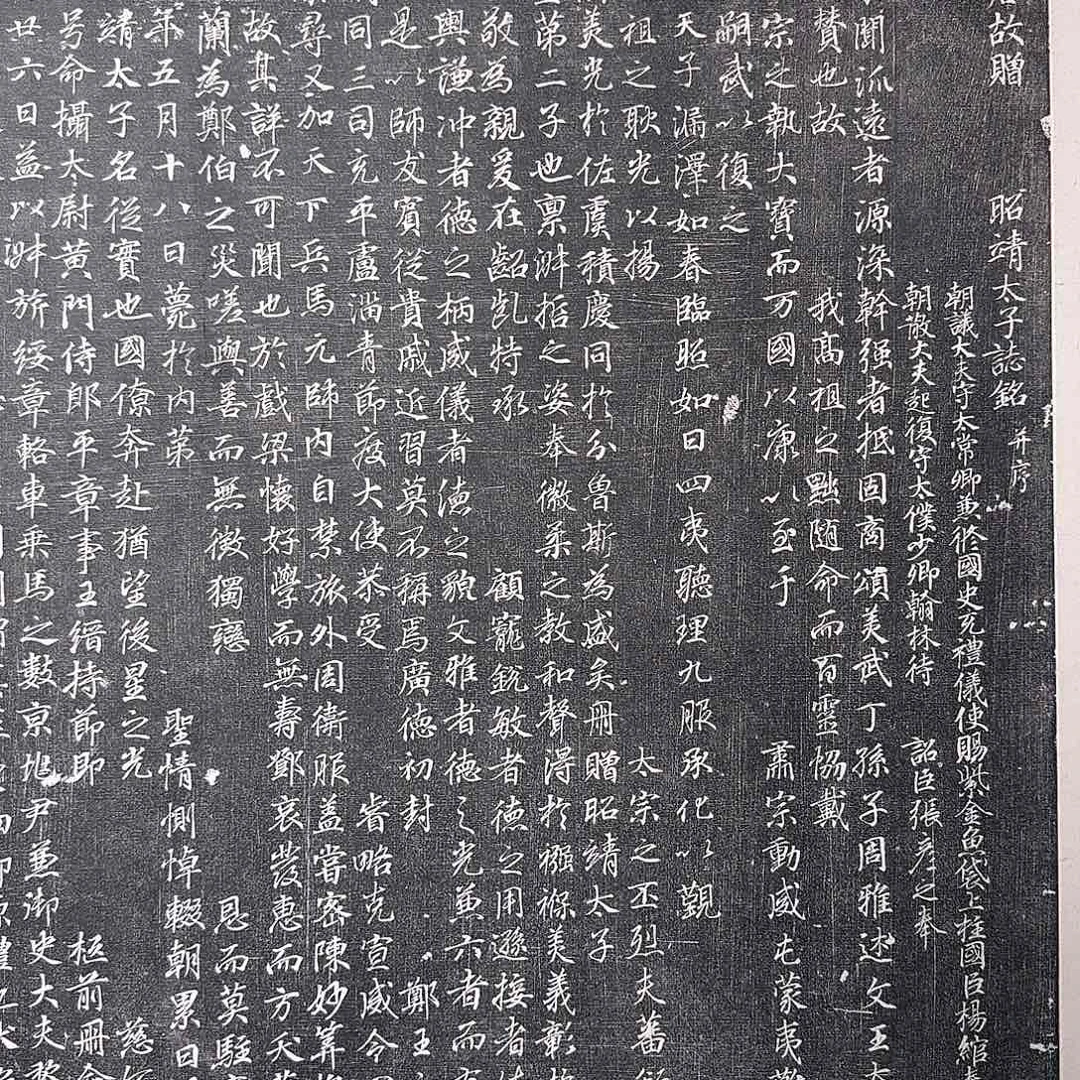 故贈 昭靖太子誌銘 并序
朝議大夫守太常卿兼修國史充禮儀使賜紫金魚袋上柱國臣楊綰
朝散大夫起復守太僕少卿翰林待 詔臣張彦之奉
聞派遠者源深幹强者抵固商頌美武丁孫子周雅述文王
贊也故 我高祖之點隨命而百靈協戴
宗之執大寶而万國以康以至于 肅宗動威屯蒙夷
嗣武以復之
天子漏澤如春臨照如日四夷聽理九服承化以觀
祖之耿光以揚 太宗之丕烈夫蕃
美光於佐虞積慶同於分魯斯為盛矣册贈昭靖太子
第二子也禀泮括之姿奉徽柔之教和聲得於襁褓美義彰
敬為親爰在齠齔特承 顧寵銳敏者德之用遜接者
與謙冲者德之柄威儀者德之貌文雅者德之光兼六者而
是以師友賓從貴戚近習莫不稱焉廣德初封 鄭王
同三司充平盧淄青節度大使恭受 睿略克宣威令
尋又加天下兵馬元帥内自禁旅外周衛服益嘗密陳妙筭
故其詳不可聞也於戲梁懷好學而無壽鄧哀發惠而方夭
蘭為鄭伯之災嗟與善而無徵獨戀 恩而莫駐
年五月十八日薨於内第 聖情惻悼輟朝累日
靖太子名從實也國僚奔赴猶望後星之光 慈
号命攝太尉黄門侍郎平章事王縉持節即 柩前册命
廿六日益以泮旂綏章輅車乘馬之數京地尹兼御史大夫黎